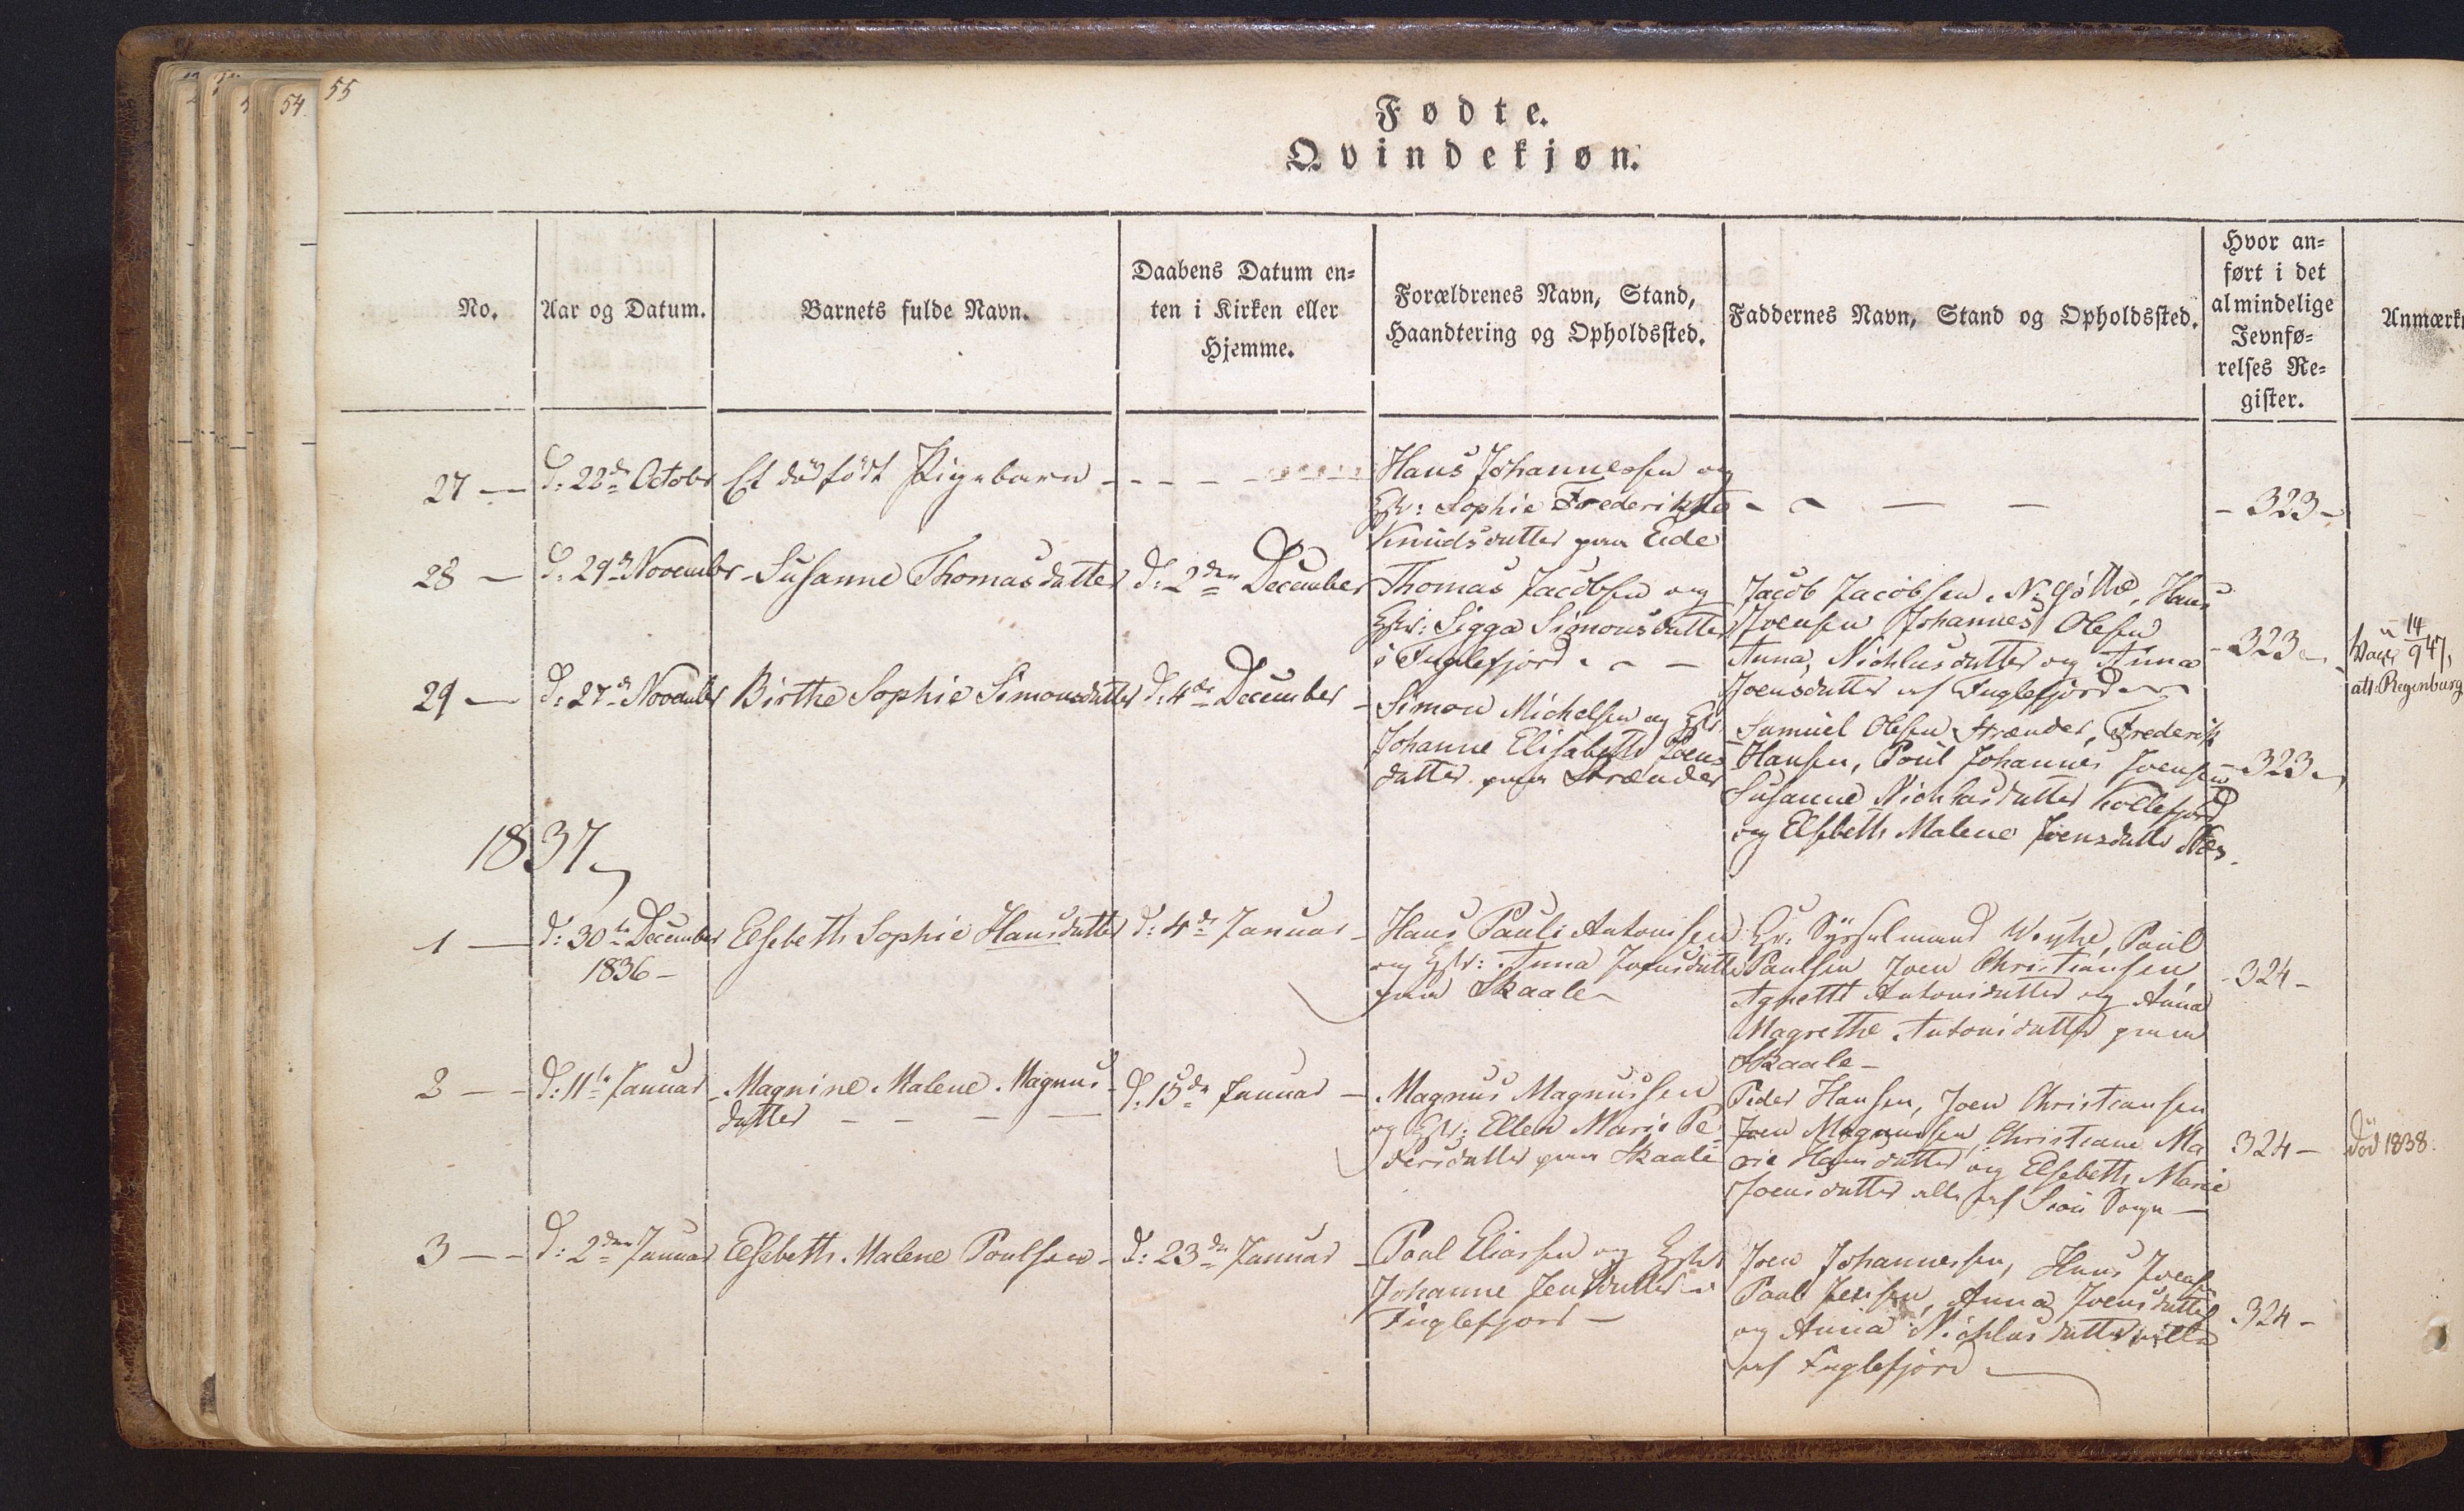 55
54
Fødte.
Qvindekjøn.
No.
Aar og Datum.
Barnets fulde Navn.
Daabens Datum en=
ten i Kirken eller
Hjemme.
Forældrenes Navn, Stand,
Haandtering og Opholdssted.
Faddernes Navn, Stand og Opholdssted.
Hvor an=
ført i det
almindelige
Jevnfø=
relses Re=
gister.
Anmærk
27 —
d: 22de Octobr
Et dødfødt Pigebarn - - - -
Hans Johannessen og
Hstr: Sophie Frederikke
Knudsdatter paa Eide
- 323 -
28 —
d: 29de Novembr
Susanne Thomasdatter
d: 2den December
Thomas Jacobsen og
Hstr: Sigga Simonsdatter
i Fuglefjord - - —
Jacob Jacobsen N: Gøthe, Hans
Joensen Johannes Olesen
Anna Nichlasdatter og Anna
Joensdatter af Fuglefjord
- 323 -
14
947,
att: Regenburg
29 —
d: 27de Novembr
Birthe Sophie Simonsdatter
d: 4de December -
Simon Michelsen og Hstr
Johanne Elisabeth Joens
datter paa Strænder
Samuel Olesen Strænder, Frederik
Hansen, Poul Johannes Joensen
Susanne Nichlasdatter Kollefjord
og Elsebeth Malene Joensdatter Næs.
- 323 -
1837
1 —
d: 30te December
1836 -
Elsebeth Sophie Hansdatter
d: 4de Januar -
Hans Pauli Antonisen
og Hstr: Anna Joensdatter
paa Skaale
Hr: Sysselmand Weyhe, Paul
Paulsen Joen Christiansen
Agneth Antonisdatter og Anna
Magrethe Antonisdatter paa
Skaale -
- 324 -
2 - -
d: 11te Januar
Magnine Malene Magnus
datter - - — —
d. 15de Januar —
Magnus Magnussen
og Hstr: Ellen Marie Pe
dersdatter paa Skaale
Peder Hansen, Joen Christiansen
Joen Magnussen, Christiane Ma
rie Hansdatter og Elsebeth Marie
Joensdatter alle af Sioú Sogn —
324 -
død 1838.
3 - -
d: 2den Januar
Elsebeth Malene Poulsen -
d: 23de Januar -
Poul Eliassen og Hstr
Johanne Jensdatter i
Fuglefjord —
Joen Johannessen, Hans Joensen
Poul Jensen, Anna Joensdatter
og Anna Nichlasdatter alle
af Fuglefjord
- 324 -